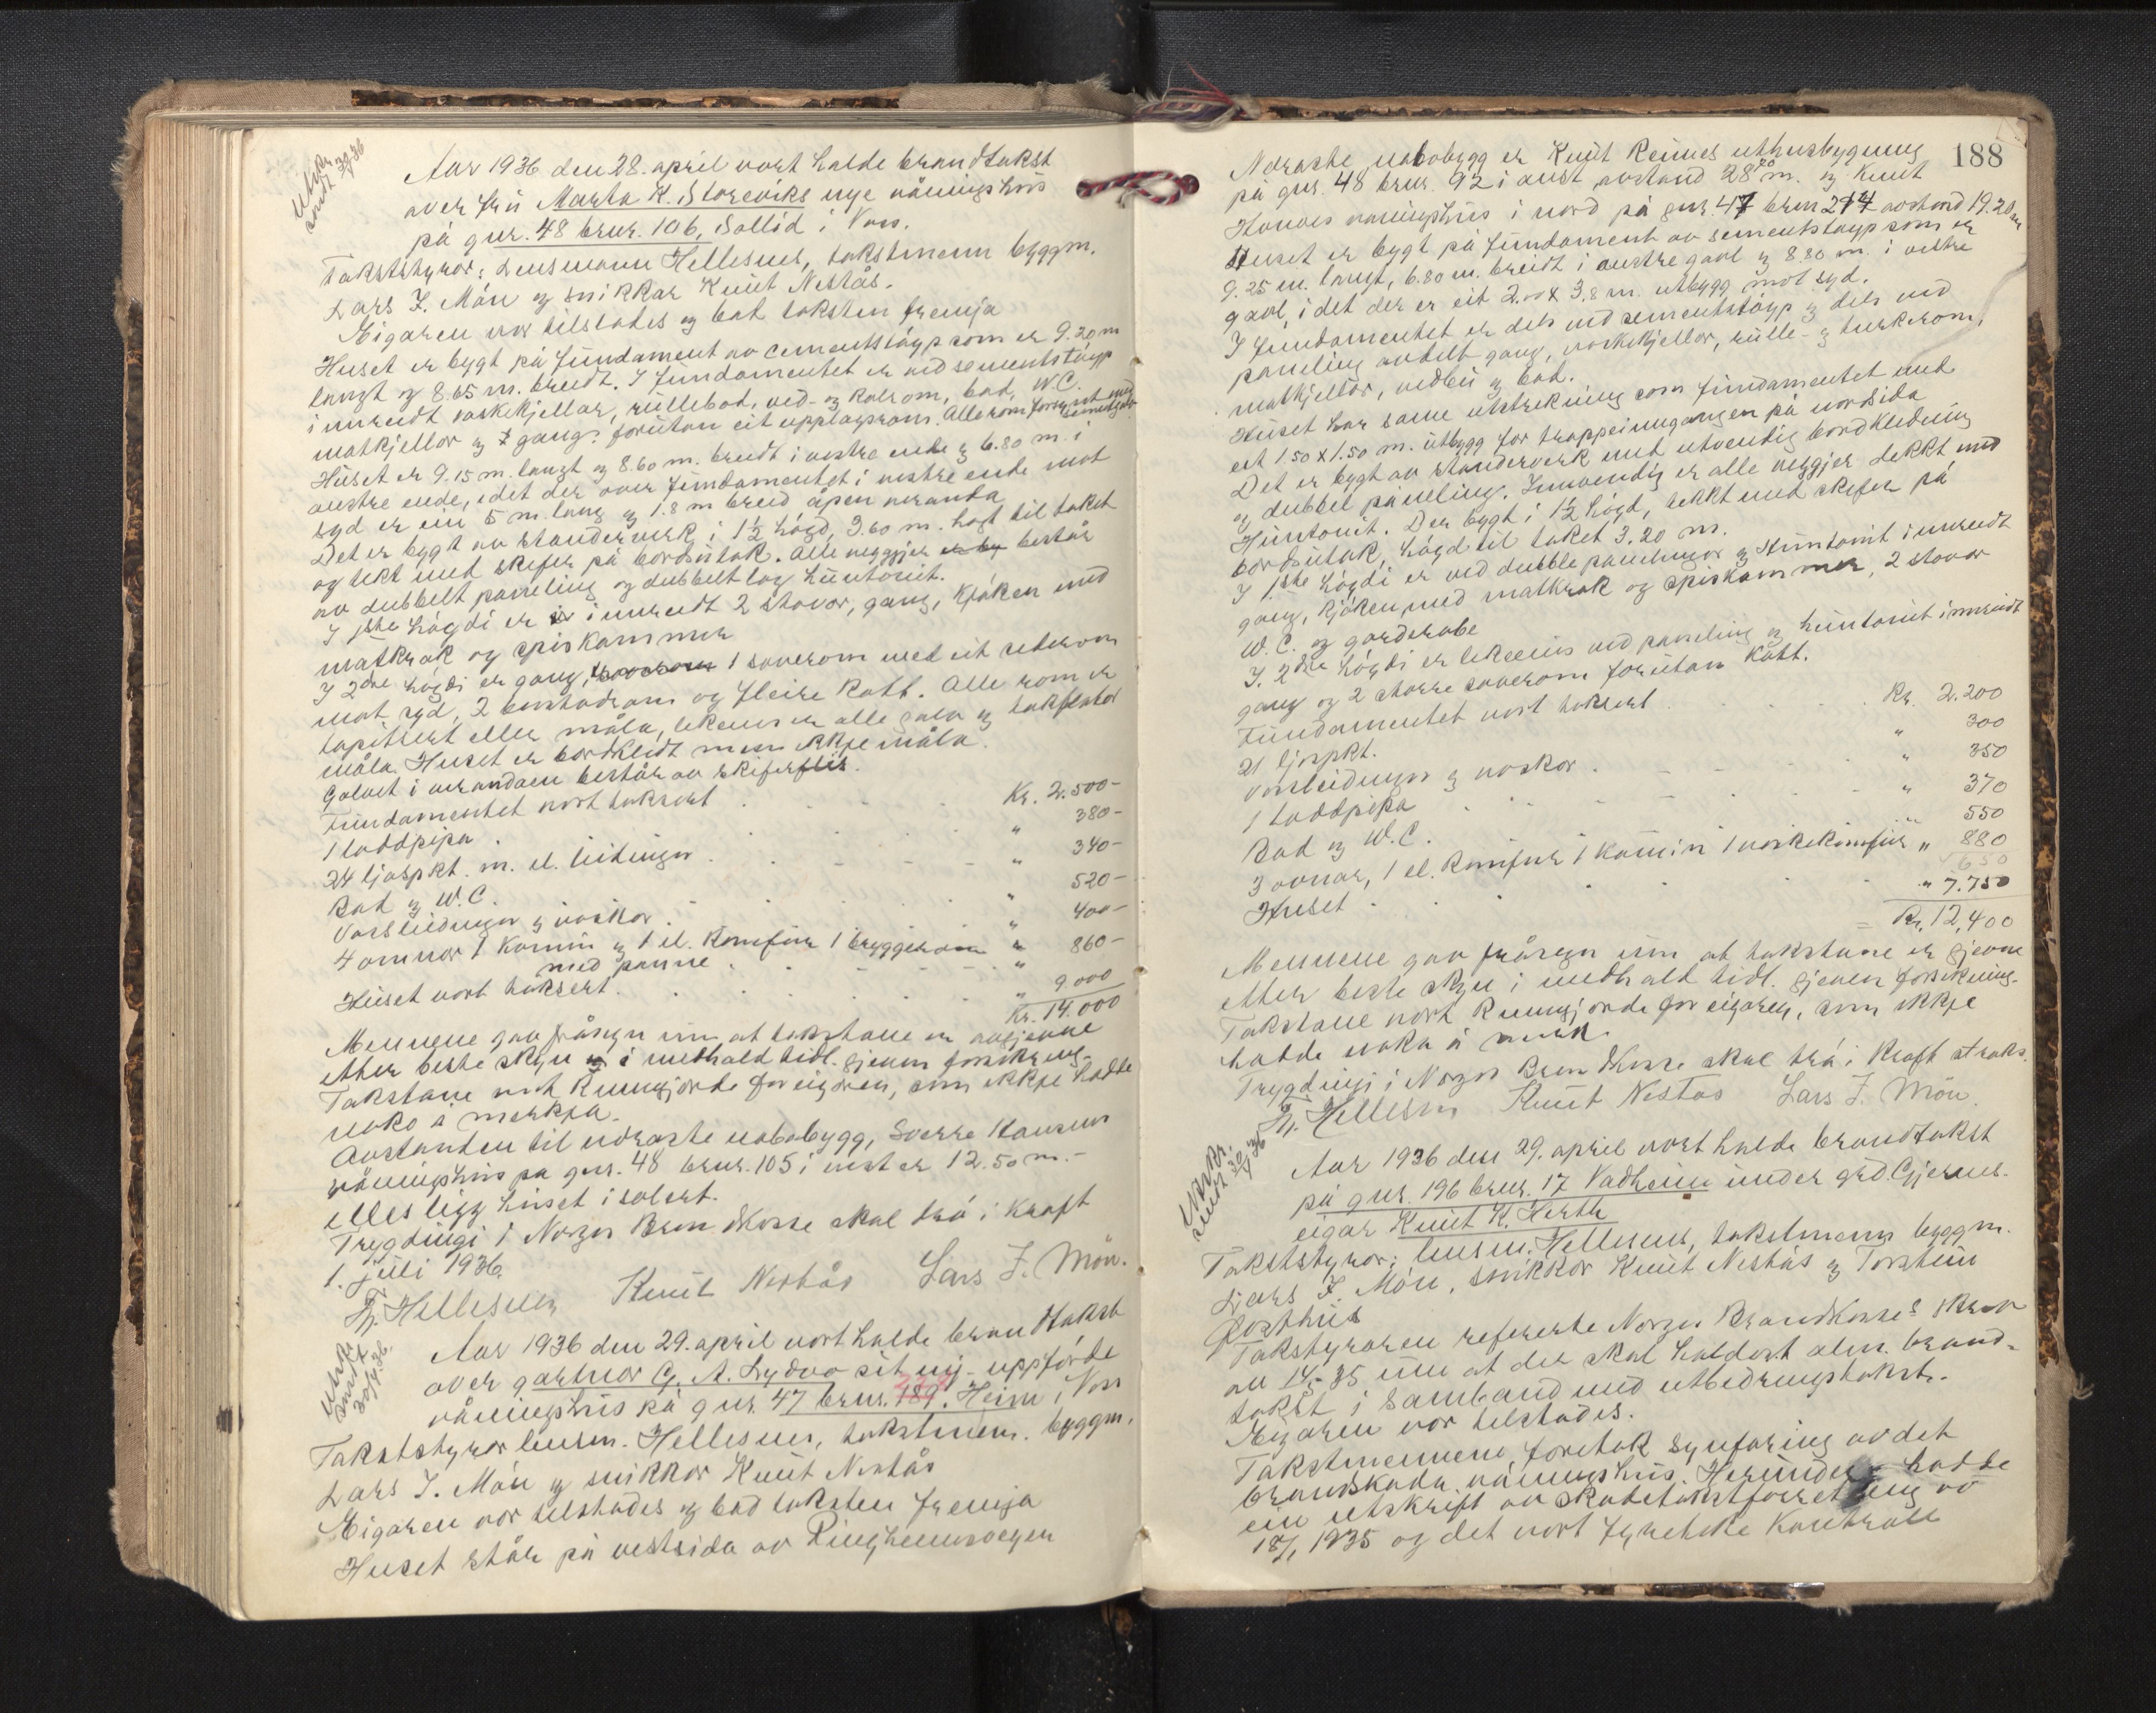 Utskr.
sendt 30/4 36
Aar 1936 den 28. april vort halde brandtakst
over fru Marta K. Storeviks nye våningshus
på gnr. 48 brnr. 106, Sollid i Voss.
Takststyrar: Lensmann Hellesnes, takstmenn byggm.
Lars J. Mön og snikkar Knut Nestås.
Eigaren var tilstades og bad taksten fremja
Huset er bygt på fundament av cementstöyp som er 9.20 m
langt og 8.65 m. breidt. I fundamentet er ved sementstöyp
innreidt vaskekjellar, rullebod, ved- og kolrom, bad, W.C.
matkjellar og gang. foruten eit upplagsrom. Alle rom forsynt med
sementgolv
Huset er 9.15 m. langt og 8.60 m. breidt i vestre ende og 6.80 m. i
austre ende, idet der over fundamentet i vestre ende mot
syd er ein 5 m. lang og 1.8 m breid åpen veranda
Det er bygt av standerverk i 1½ högd, 3.60 m. högt til taket
og tekt med skifer på bordsutak. Alle veggjer er by består
av dubbelt paneling og dubbelt lag huntonit.
I 1ste högdi er innreidt 2 stovor, gang, kjöken med
matkrok og spiskammer
I 2dre högdi er gang, 1 soverom med eit siderom
mot syd, 2 bustadrom og fleire kott. Alle rom er
tapitsert eller måla, likeens er alle golv og takflator
måla. Huset er bordkledt men ikkje måla.
Golvet i verandaen består av skiferflis.
Fundamentet vort taksert . . . . Kr. 2.500-
1 loddpipa . . . . " 380-
24 ljospkt. m. el. leidingar . . . . " 340-
Bad og W.C. . . . . " 520-
Vassleidingar og vaskar . . . . " 400-
4 omnar 1 kamin og 1 el. komfur 1 bryggeromn " 860-
med panne
Huset vort taksert . . . . " 9.000
Kr. 14.000
Mennene gav fråsegn um at takstane er avgjevne
etter beste skyn og i medhald tidl. gjeven forsikring.
Takstane vort kunngjorde for eigaren, som ikkje hadde
noko å merkja.
Avstanden til næraste nabobygg, Sverre Hansens
våningshus på gnr. 48 brnr. 105 i vest er 12.50 m.-
elles ligg huset isolert.
Trygdingi i Norges Brannkasse skal trå i kraft
1. juli 1936.
Hellesnes Knut Nestås Lars J. Mön.
Utskr.
sendt
30/4 36.
Aar 1936 den 29. april vort halde brandtakst
over gartnar G. A. Lydvo sit ny- uppförde
våningshus på gnr. 47 brnr. 189. Heim i Voss
Takststyrar lensm. Hellesnes, takstmenn. byggm.
Lars J. Mön og snikkar Knut Nestås
Eigaren var tilstades og bad taksten fremja
Huset står på vestsida av Ringheimsvegen
188
Næraste nabobygg er Knut Reimes uthusbygning
på gnr. 48 brnr. 92 i aust avstand 28 m. og Knut
våningshus i nord på gnr. 47 brnr 214 avstand 19.20 m
Huset er bygt på fundament av sementstöyp som er
9.25 m. langt, 6.80 m. breidt i austre gavl og 8.80 m. i vestre
gavl, idet der er eit 2.00 x 3.8 m. utbygg mot syd.
I fundamentet er dels ved sementstöyp og dels ved
paneling avdelt gang, vaskekjellar, rulle- og turkerom,
matkjellar, vedbu og bad.
Huset har same utstrekning som fundamentet med
eit 1.50 x 1.50 m. utbygg for trappeinngangen på nordsida
Det er bygt av standerverk med utvendig bordkledning
og dubbel påneling. Innvendig er alle veggjer dekkt med
Huntonit. Der bygt i 1½ högd, tekkt med skifer på
bordsutak, högd til taket 3.20 m.
I 1ste högdi er ved dubble panelingar og Huntonit innreidt
gang, kjöken med matkrok og spiskammer, 2 stovor
W.C. og garderobe
I. 2dre högdi er likeeins ved paneling og huntonit innreidt
gang og 2 större soverom forutan kott.
Fundamentet vort taksert . . . . Kr. 2.200
21 ljospkt. " 300
Vassleidingar og vaskar . . . . " 350
1 loddpipa . . . . " 370
Bad og W.C. . . . . 550
3 ovnar, 1 el. komfur 1 kamin 1 vaskekomfur " 880
650
Huset . . . . " 7.750
Kr. 12,400
Mennene gav fråsegn um at takstane er gjevne
etter beste skyn i medhald tidl. gjeven forsikring.
Takstane vort kunngjorde for eigaren, som ikkje
hadde noko å merk.
Trygdingi i Norges Brannkasse skal trå i kraft straks.
Hellesnes Knut Nestås Lars J. Mön.
Utskr.
sendt 30/4 36
Aar 1936 den 29. april vort halde brandtakst
på gnr. 196 brnr. 17 Vadheim under grd. Gjernes.
eigar Knut K. Herth
Takststyrar: lensm. Hellesnes, takstmenn byggm.
Lars J. Mön, snikkar Knut Nestås og Torstein
Rosthus
Takstyraren refererte Norges Brandkasses skriv
av 14/5-35 um at der skal haldast alm. brand-
takst i samband med utbedringstakst.
Eigaren var tilstades.
Takstmennene foretok synfaring av det
brandskada våningshus. Herunder hadde
ein utskrift av skadetakstforretning av
18/1 1935 og det vort foreteke kontroll